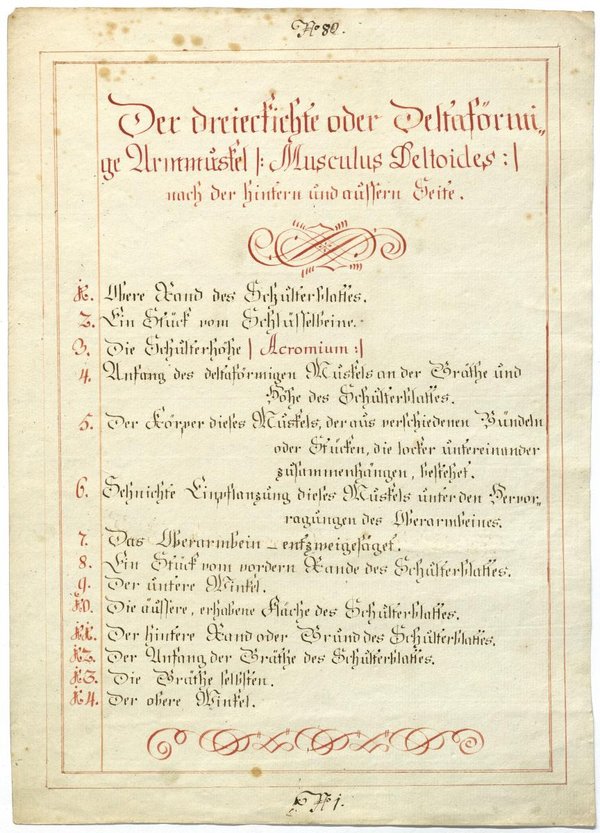 No 80.
Der dreieckichte oder Deltaförmi„
ge Armmuskel |: Musculus Deltoides :|
nach der hintern und aussern Seite.
1. Obere Rand des Schulterblattes.
2. Ein Stück vom Schlüsselbeine.
3. Die Schulterhöhe | Acromium :|
4. Anfang des deltaförmigen Muskels an der Gräthe und
Höhe des Schulterblattes.
5. Der Körper dieses Muskels, der aus verschiedenen Bündeln
oder Stücken, die locker untereinander
zusammenhängen, bestehet.
6. Sehnichte Einpflanzung dieses Muskels unter den Hervor-
ragungen des Oberarmbeines.
7. Das Oberarmbein – entzweigesäget.
8. Ein Stück vom vordern Rande des Schulterblattes.
9. Der untere Winkel.
10. Die äussere, erhabene Fläche des Schulterblattes.
11. Der hintere Rand oder Grund des Schulterblattes.
12. Der Anfang der Gräthe des Schulterblattes.
13. Die Gräthe selbsten.
14. Der obere Winkel.
No 1.